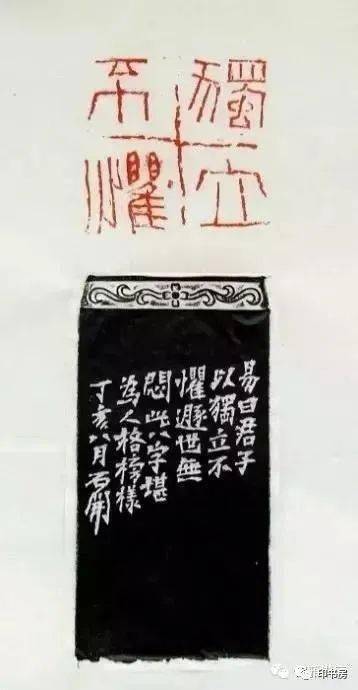 獨立
不懼
易曰君子
以獨立不
懼遯世無
悶此八字堪
為人格榜樣
丁亥八月石開
印书房